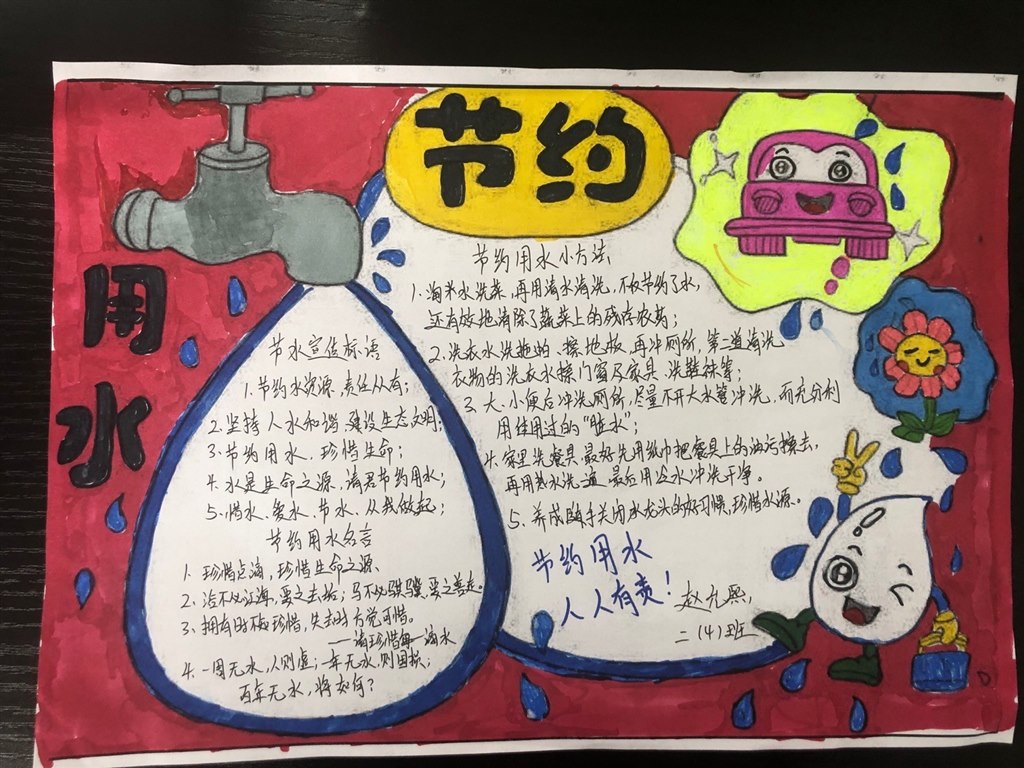 节约
用水
节水宣传标语
1.节约水资源,责任从有;
2.坚持人水和谐 建设生态文明;
3.节约用水、珍惜生命;
4.水是生命之源 请君节约用水;
5.惜水、爱水、节水、从我做起;
节约用水名言
1.珍惜点滴,珍惜生命之源
2.浴不必江海,要之去垢;马不必骐骥,要之善走。
3.拥有时板珍惜,失去时方觉可惜。
——请珍惜每一滴水
4.一周无水,人则虚;一年无水,则国
百年无水,将如何?
节约用水小方法
1.淘米水洗菜,再用清水清洗,不仅节约了水,
还有效地清除了蔬菜上的残存农药;
2.洗衣水洗拖把、擦地板,再冲厕所,第二道清洗
衣物的洗衣水擦门窗及家具、洗鞋袜等;
3.大、小便后冲洗厕所,尽量不开大水管冲洗,而充分利
用使用过的“脏水”;
4.家里洗餐具,最好先用纸巾把餐具上的油污擦去,
再用热水洗一遍,最后用冷水冲洗干净。
5.养成随手关闭水龙头的好习惯,珍惜水源。
节约用水
人人有责!
赵九熙
二(4)班
D